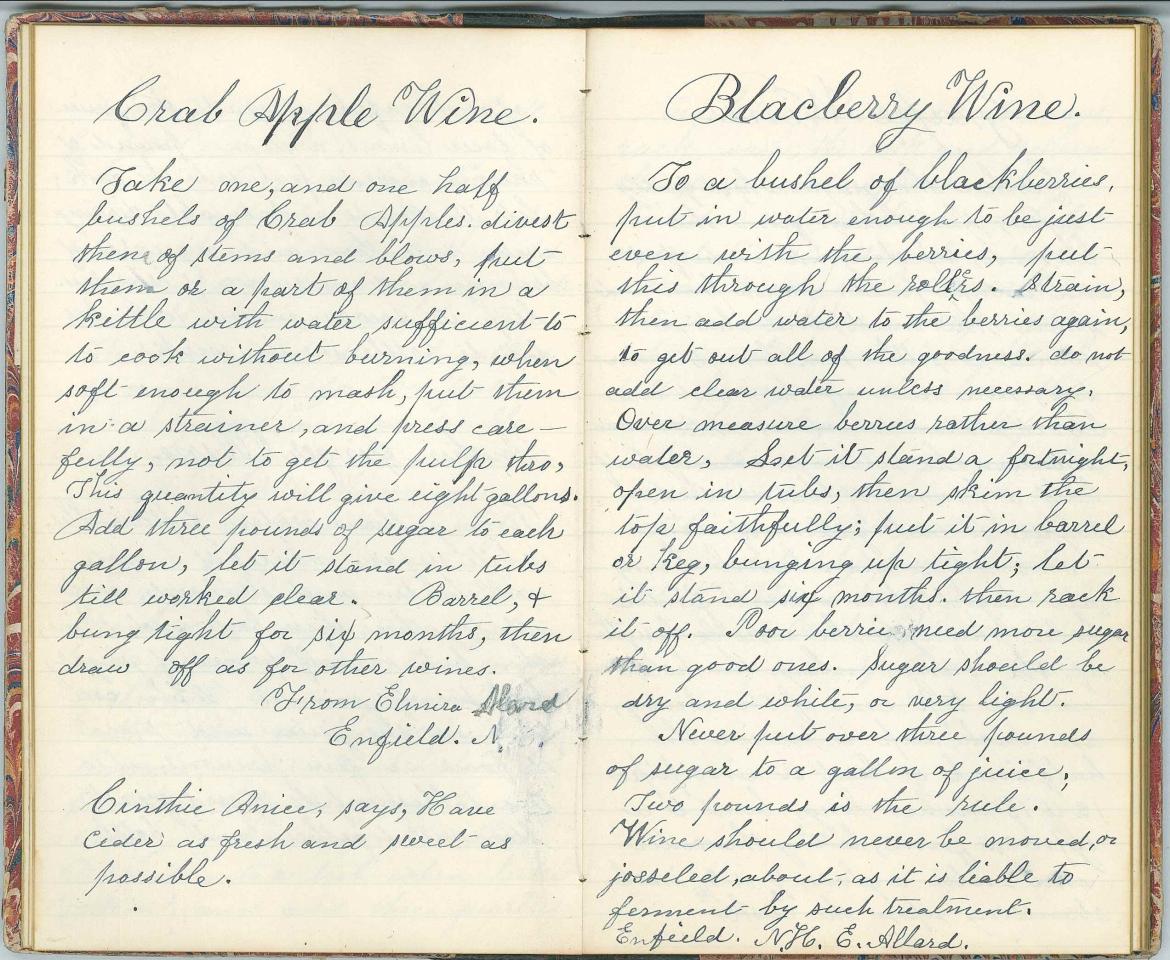 Crab Apple Wine.
Take one, and one half
bushels of Crab Apples. divest
them of stems and blows, put
them or a part of them in a
kettle with water sufficient to
to cook without burning, when
soft enough to mash, put them
in a strainer, and press care-
fully, not to get the pulp thro,
This quantity will give eight gallons.
Add three pounds of sugar to each
gallon, let it stand in tubs
till worked clear. Barrel, &
bung tight for six months, then
draw off as for other wines.
From Elmira Alard
Enfield. N.
Cinthie Anice, says, Have
cider as fresh and sweet as
possible.
Blacberry Wine.
To a bushel of blackberries,
put in water enough to be just
even with the berries, put
this through the rollers. Strain,
then add water to the berries again,
to get out all of the goodness. do not
add clear water unless necessary.
Over measure berries rather than
water, Let it stand a fortnight,
open in tubs, then skim the
top faithfully; put it in barrel
or keg, bunging up tight; let
it stand six months. then rack
it off. Poor berries need more sugar
than good ones. Sugar should be
dry and white, or very light.
Never put over three pounds
of sugar to a gallon of juice,
Two pounds is the rule.
Wine should never be moved, or
josseled, about, as it is liable to
ferment by such treatment.
Enfield. N.H. E. Allard.